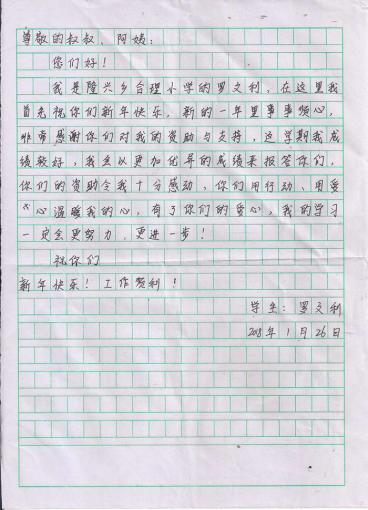 尊敬的叔叔、阿姨:
您们好!
我是隆兴乡合理小学的罗文利,在这里我
首先祝你们新年快乐,新的一年里事事顺心,
非常感谢你们对我的资助与支持,这学期我成
绩较好,我会以更加优异的成绩来报答你们,
你们的资助令我十分感动,你们用行动、用爱
心温暖我的心,有了你们的爱心,我的学习
一定会更努力,更进一步!
祝你们
新年快乐!工作顺利!
学生:罗文利
1月26日